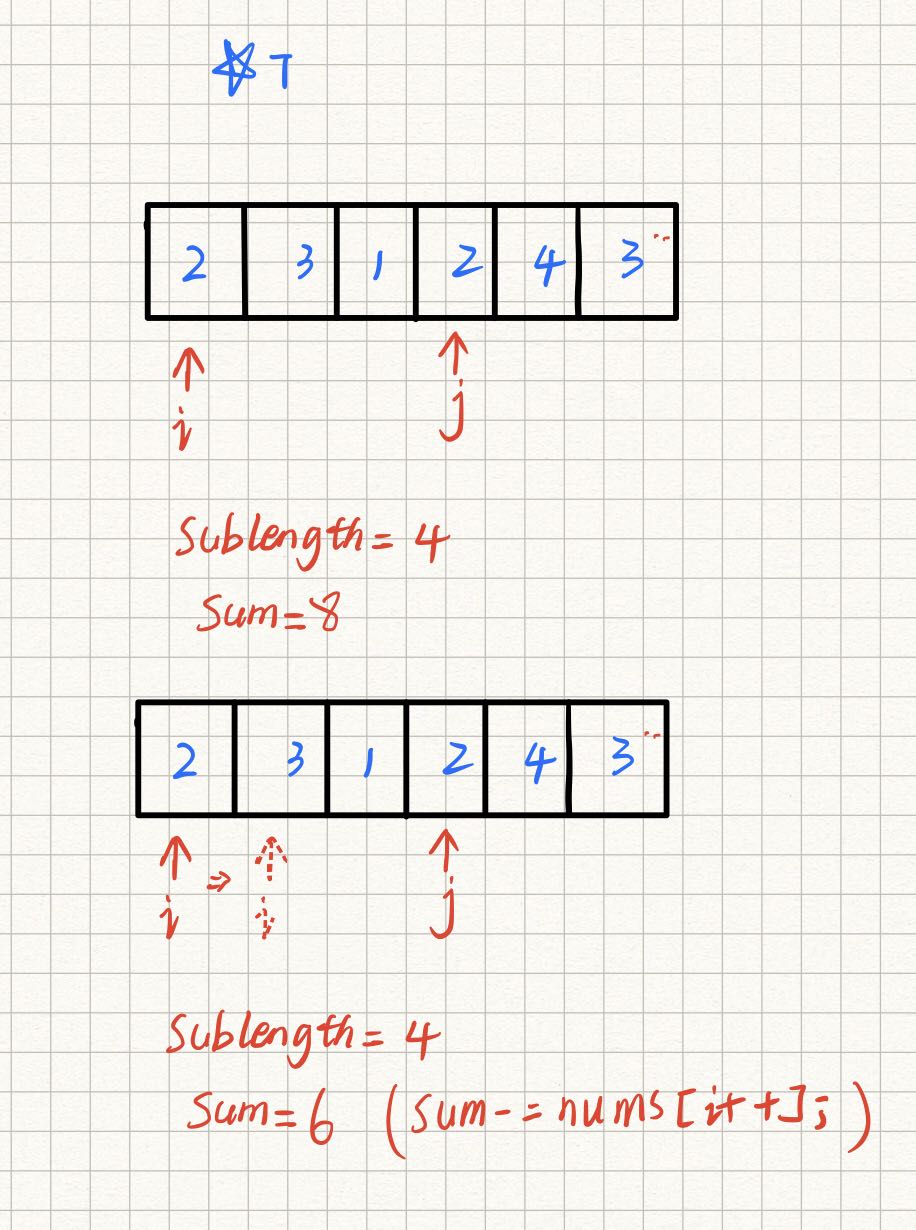 T
2 3 1 2 4 3
i j
Sublength = 4
Sum = 8
2 3 1 2 4 3
i ⇒ i j
Sublength = 4
Sum = 6 (Sum -= nums[i++];)